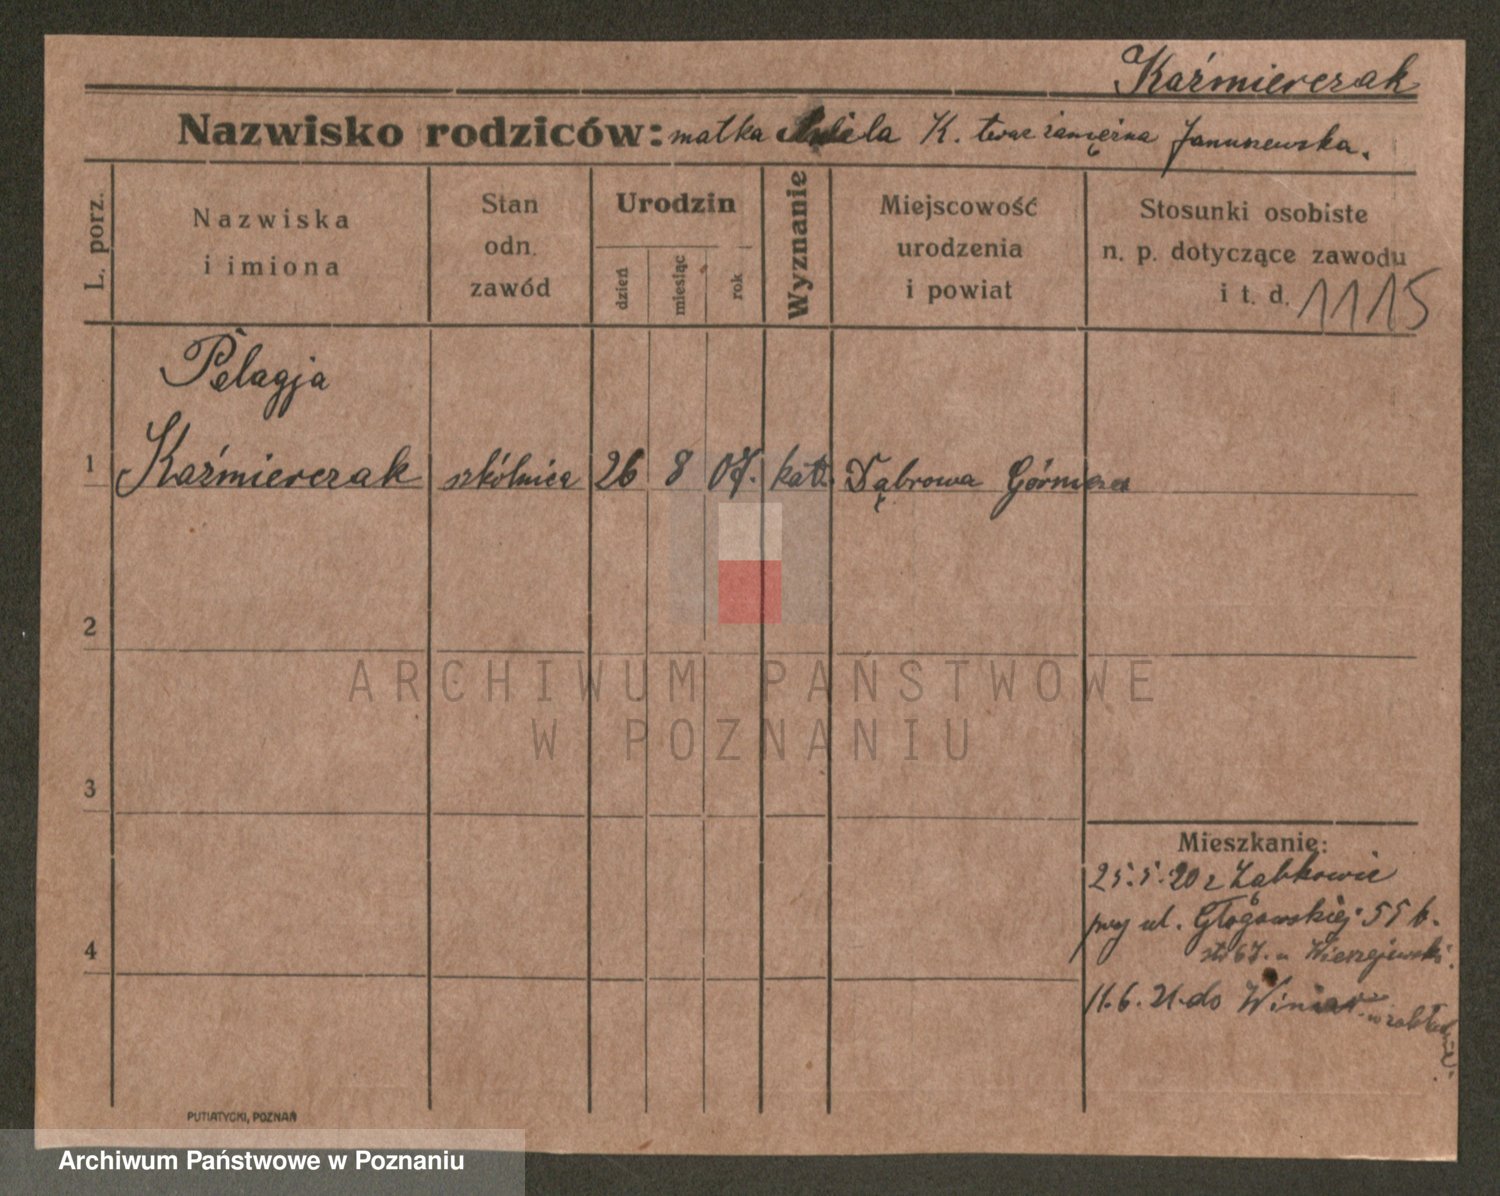 Kaźmierczak
Nazwisko rodziców: matka Aniela K. teraz zamężna Januszewska.
L. porz.
Nazwiska
i imiona
Stan
odn.
zawód
Urodzin
dzień
miesiąc
rok
Wyznanie
Miejscowość
urodzenia
i powiat
Stosunki osobiste
n. p. dotyczące zawodu
i t. d. 1115
Pelagja
1 Kaźmierczak szkólnica 26 8 07. kat. Dąbrowa Górnicza
2
3
4
Mieszkanie:
25.5.20 z Ząbkowic
przy ul. Głogowskiej 55 b.
u Wierzejewski.
11.6.21. do Winiar w
PUTIATYCKI, POZNAŃ
ARCHIWUM PAŃSTWOWE
W POZNANIU
Archiwum Państwowe w Poznaniu